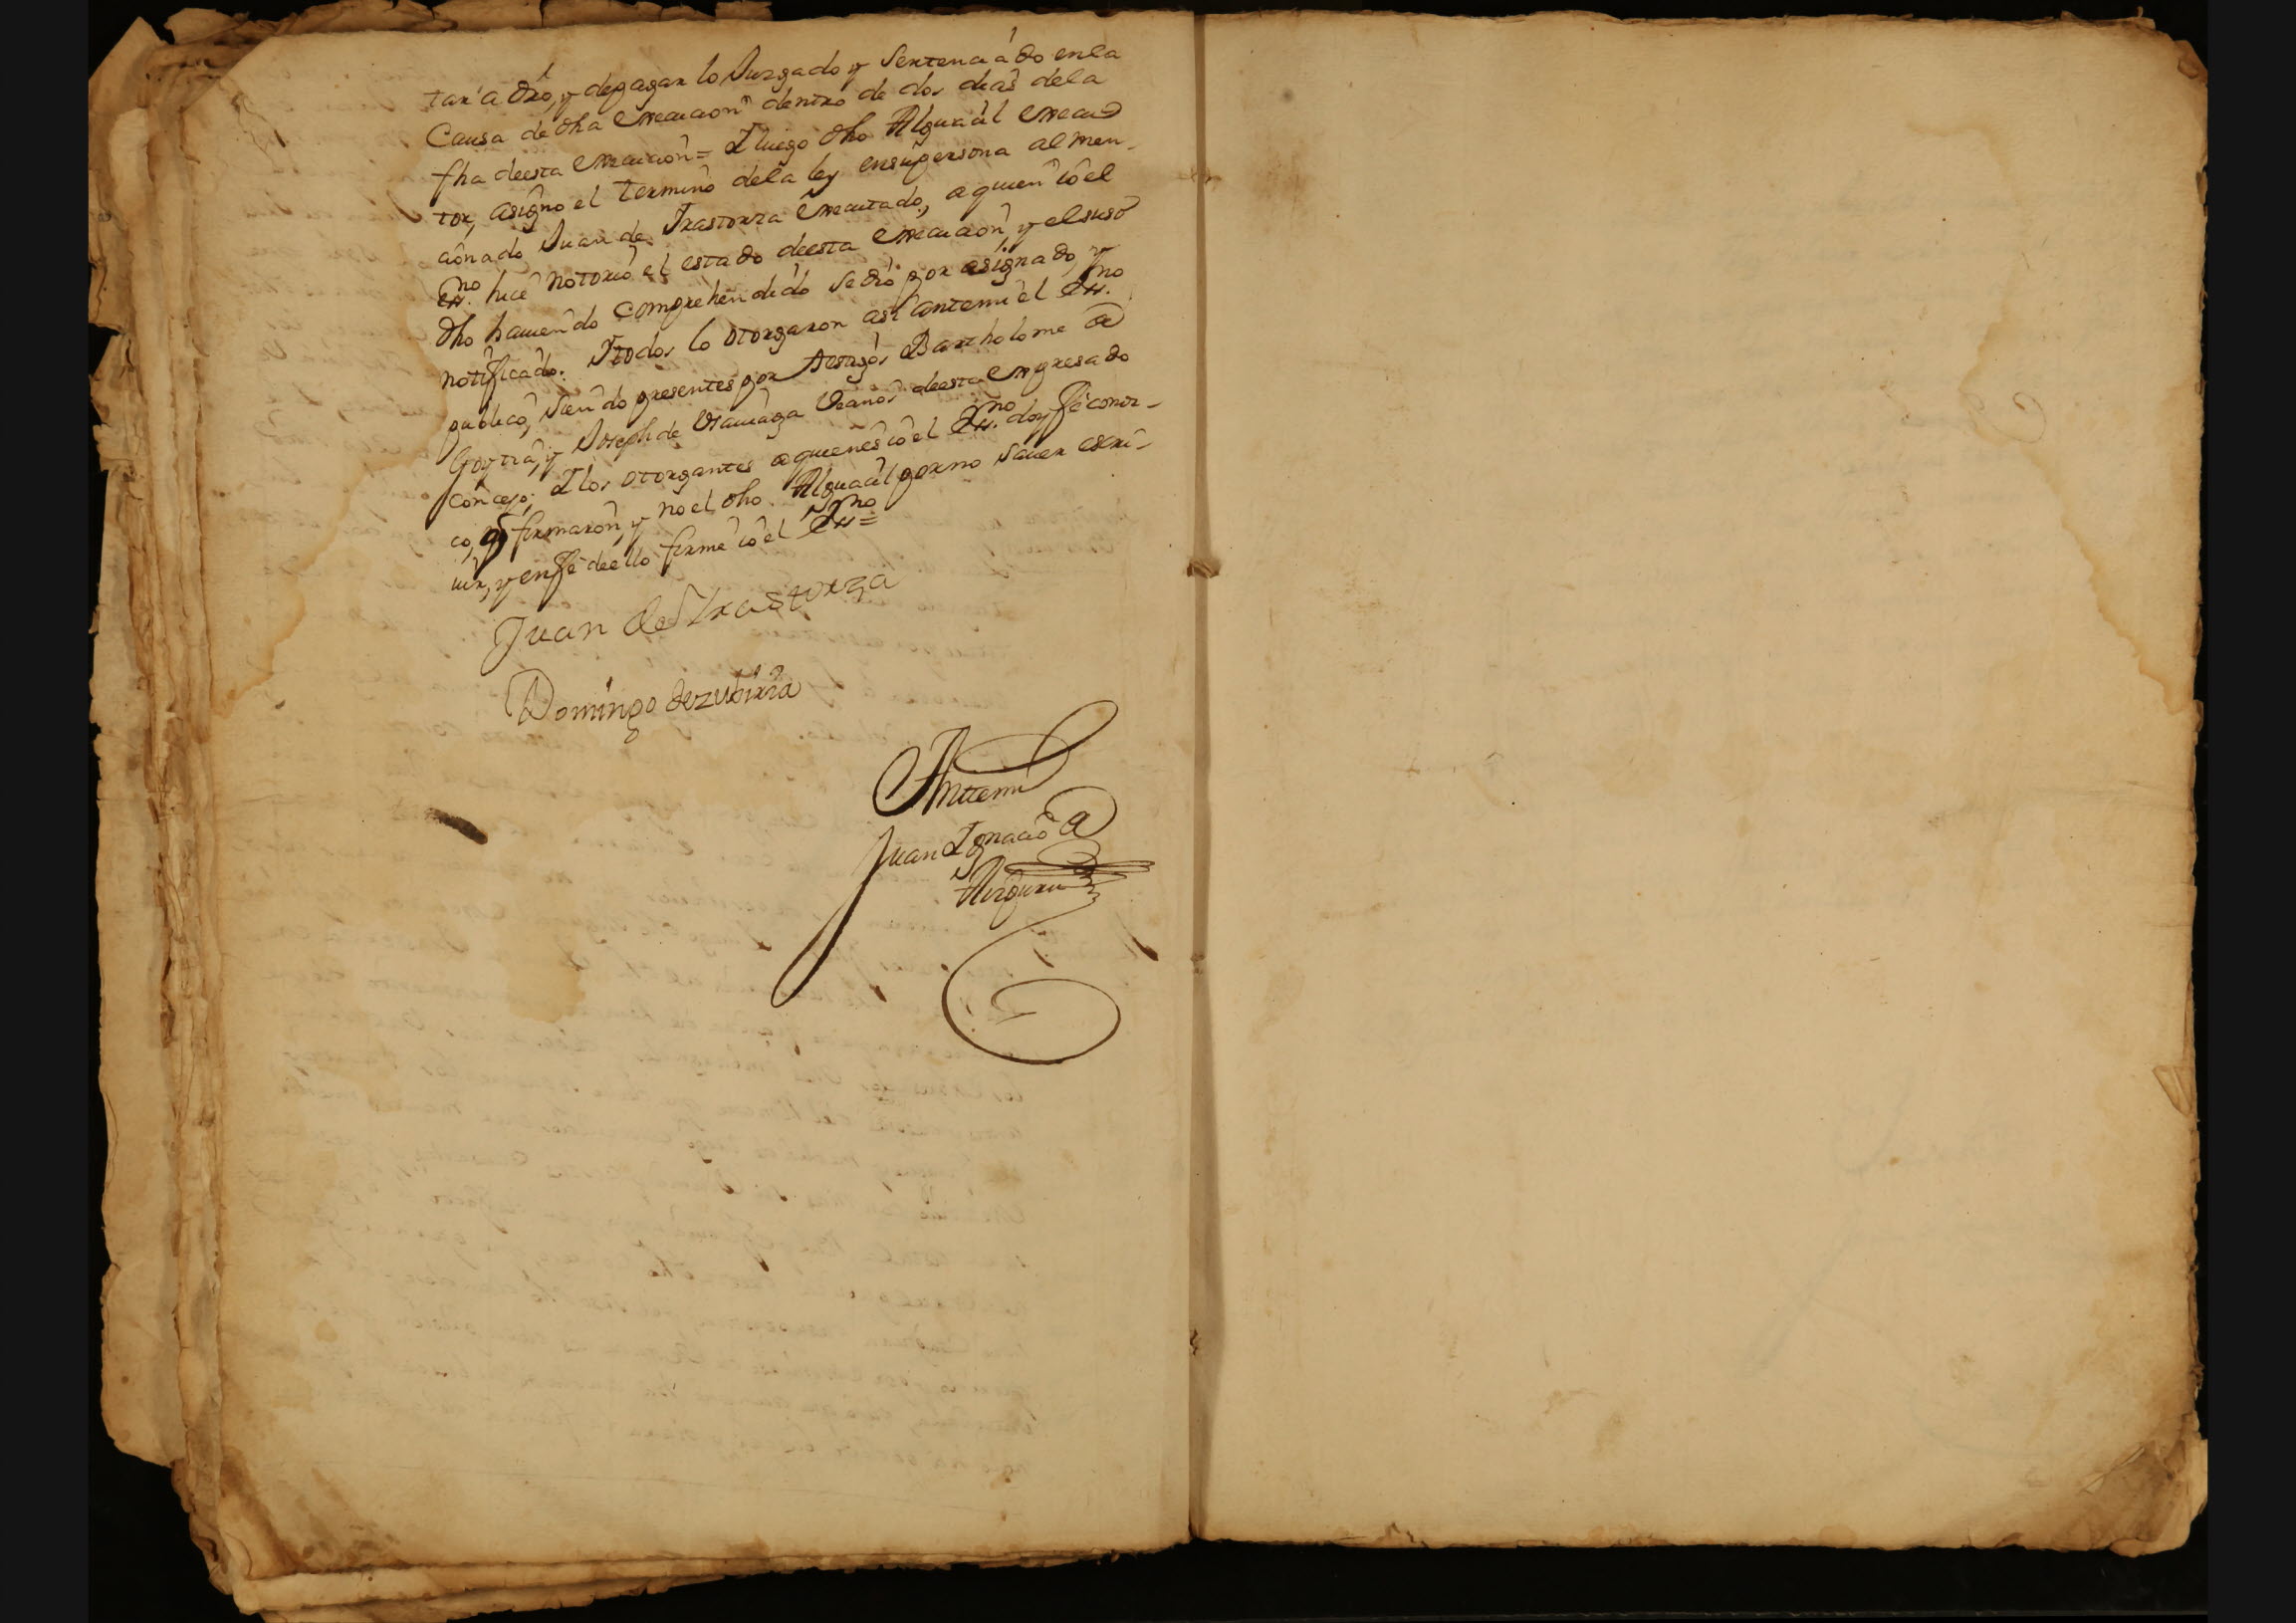 tar a dro, y de pagar lo Juzgado y Sentenciado en la
Causa de dha execucion dentro de dos dias de la
fha de esta execucion = I luego dho Alguacil execu
tor, asigno el termino de la ley en su persona al men-
cionado Juan de Irastorza executado, a quien io el
Ess.no hice notorio el estado de esta execucion, y el suso
dho haviendo comprehendido se dio por asignado, y
notificado. I todos lo otorgaron asi ante mi el Ess.no
publico, siendo presentes por testigos Bartholome de
Goytia, y Joseph de Vzauiaga Vecinos de este expresado
Concejo; I los otorgantes a quienes io el Ess.no doy fee conoz-
co, firmaron, y no el dho Alguacil por no saver escri-
uir, y en fee de ello firme io el Ess.no =
Juan de Irastorza
Domingo de zubiria
Ante mi
Juan Ignacio de